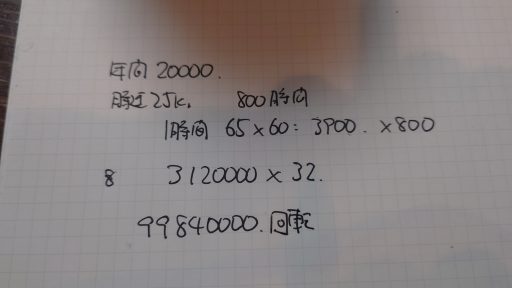 年间 20000.
時速25k. 800時间
1時间 65×60: 3900. ×800
8 3120000×32.
99840000.回転